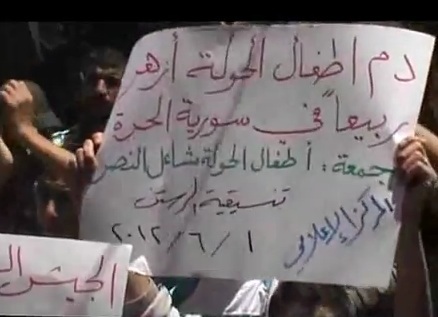 دم اطفال الحولة أزهر
ربيعاً في سورية الحرة
جمعة : أطفال الحولة مشاعل النصر
تنسيقية الرستن
المركز الإعلامي
٢٠١٢/٦/١
الجيش